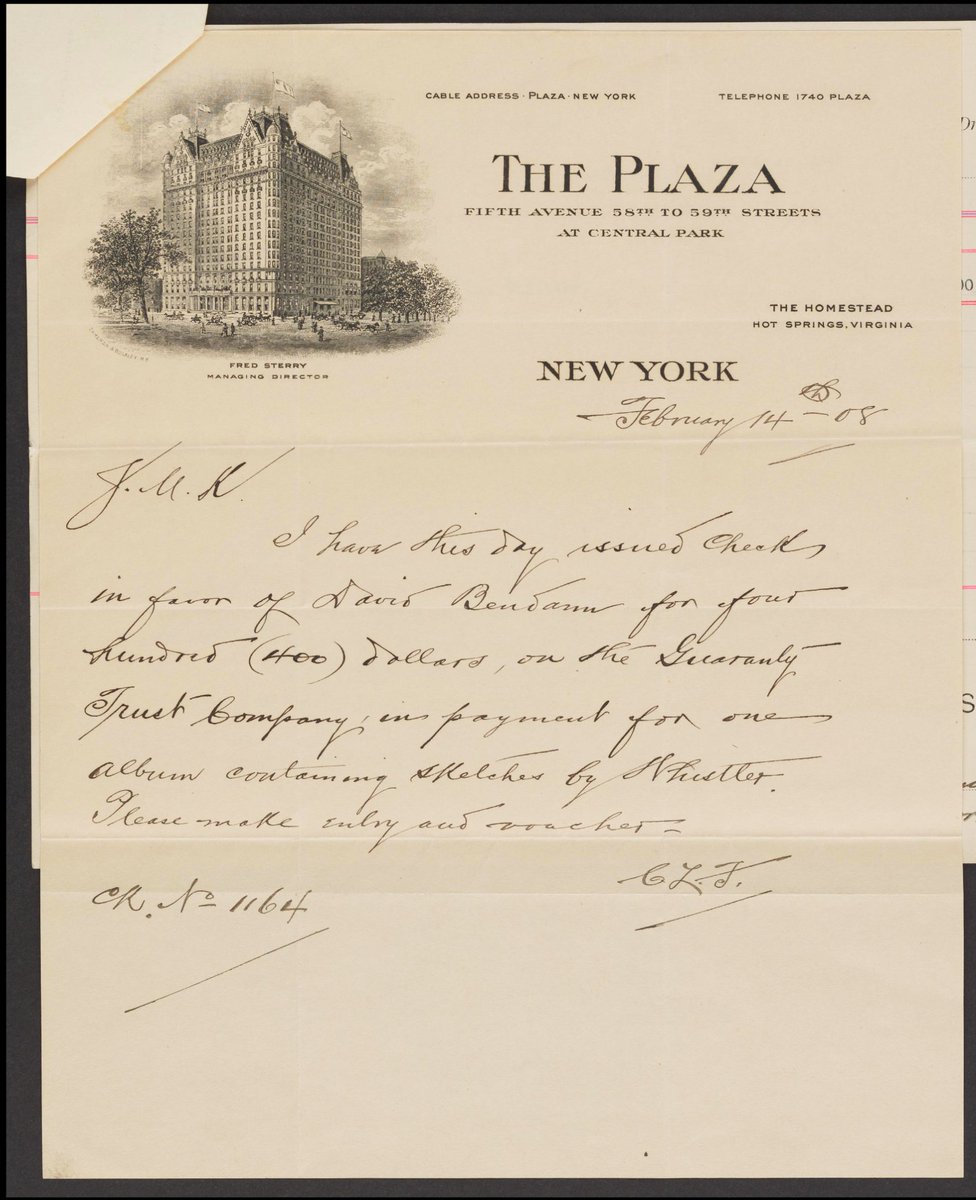 CABLE ADDRESS · PLAZA · NEW YORK
TELEPHONE 1740 PLAZA
THE PLAZA
FIFTH AVENUE 58TH TO 59TH STREETS
AT CENTRAL PARK
THE HOMESTEAD
HOT SPRINGS, VIRGINIA
FRED STERRY
MANAGING DIRECTOR
NEW YORK
February 14th - 08
J. M. K.
I have this day issued check
in favor of David Bendann for four
hundred (400) dollars, on the Guaranty
Trust Company, in payment for one
album containing sketches by Whistler.
Please make entry and voucher -
C L. F.
Ck. No 1164